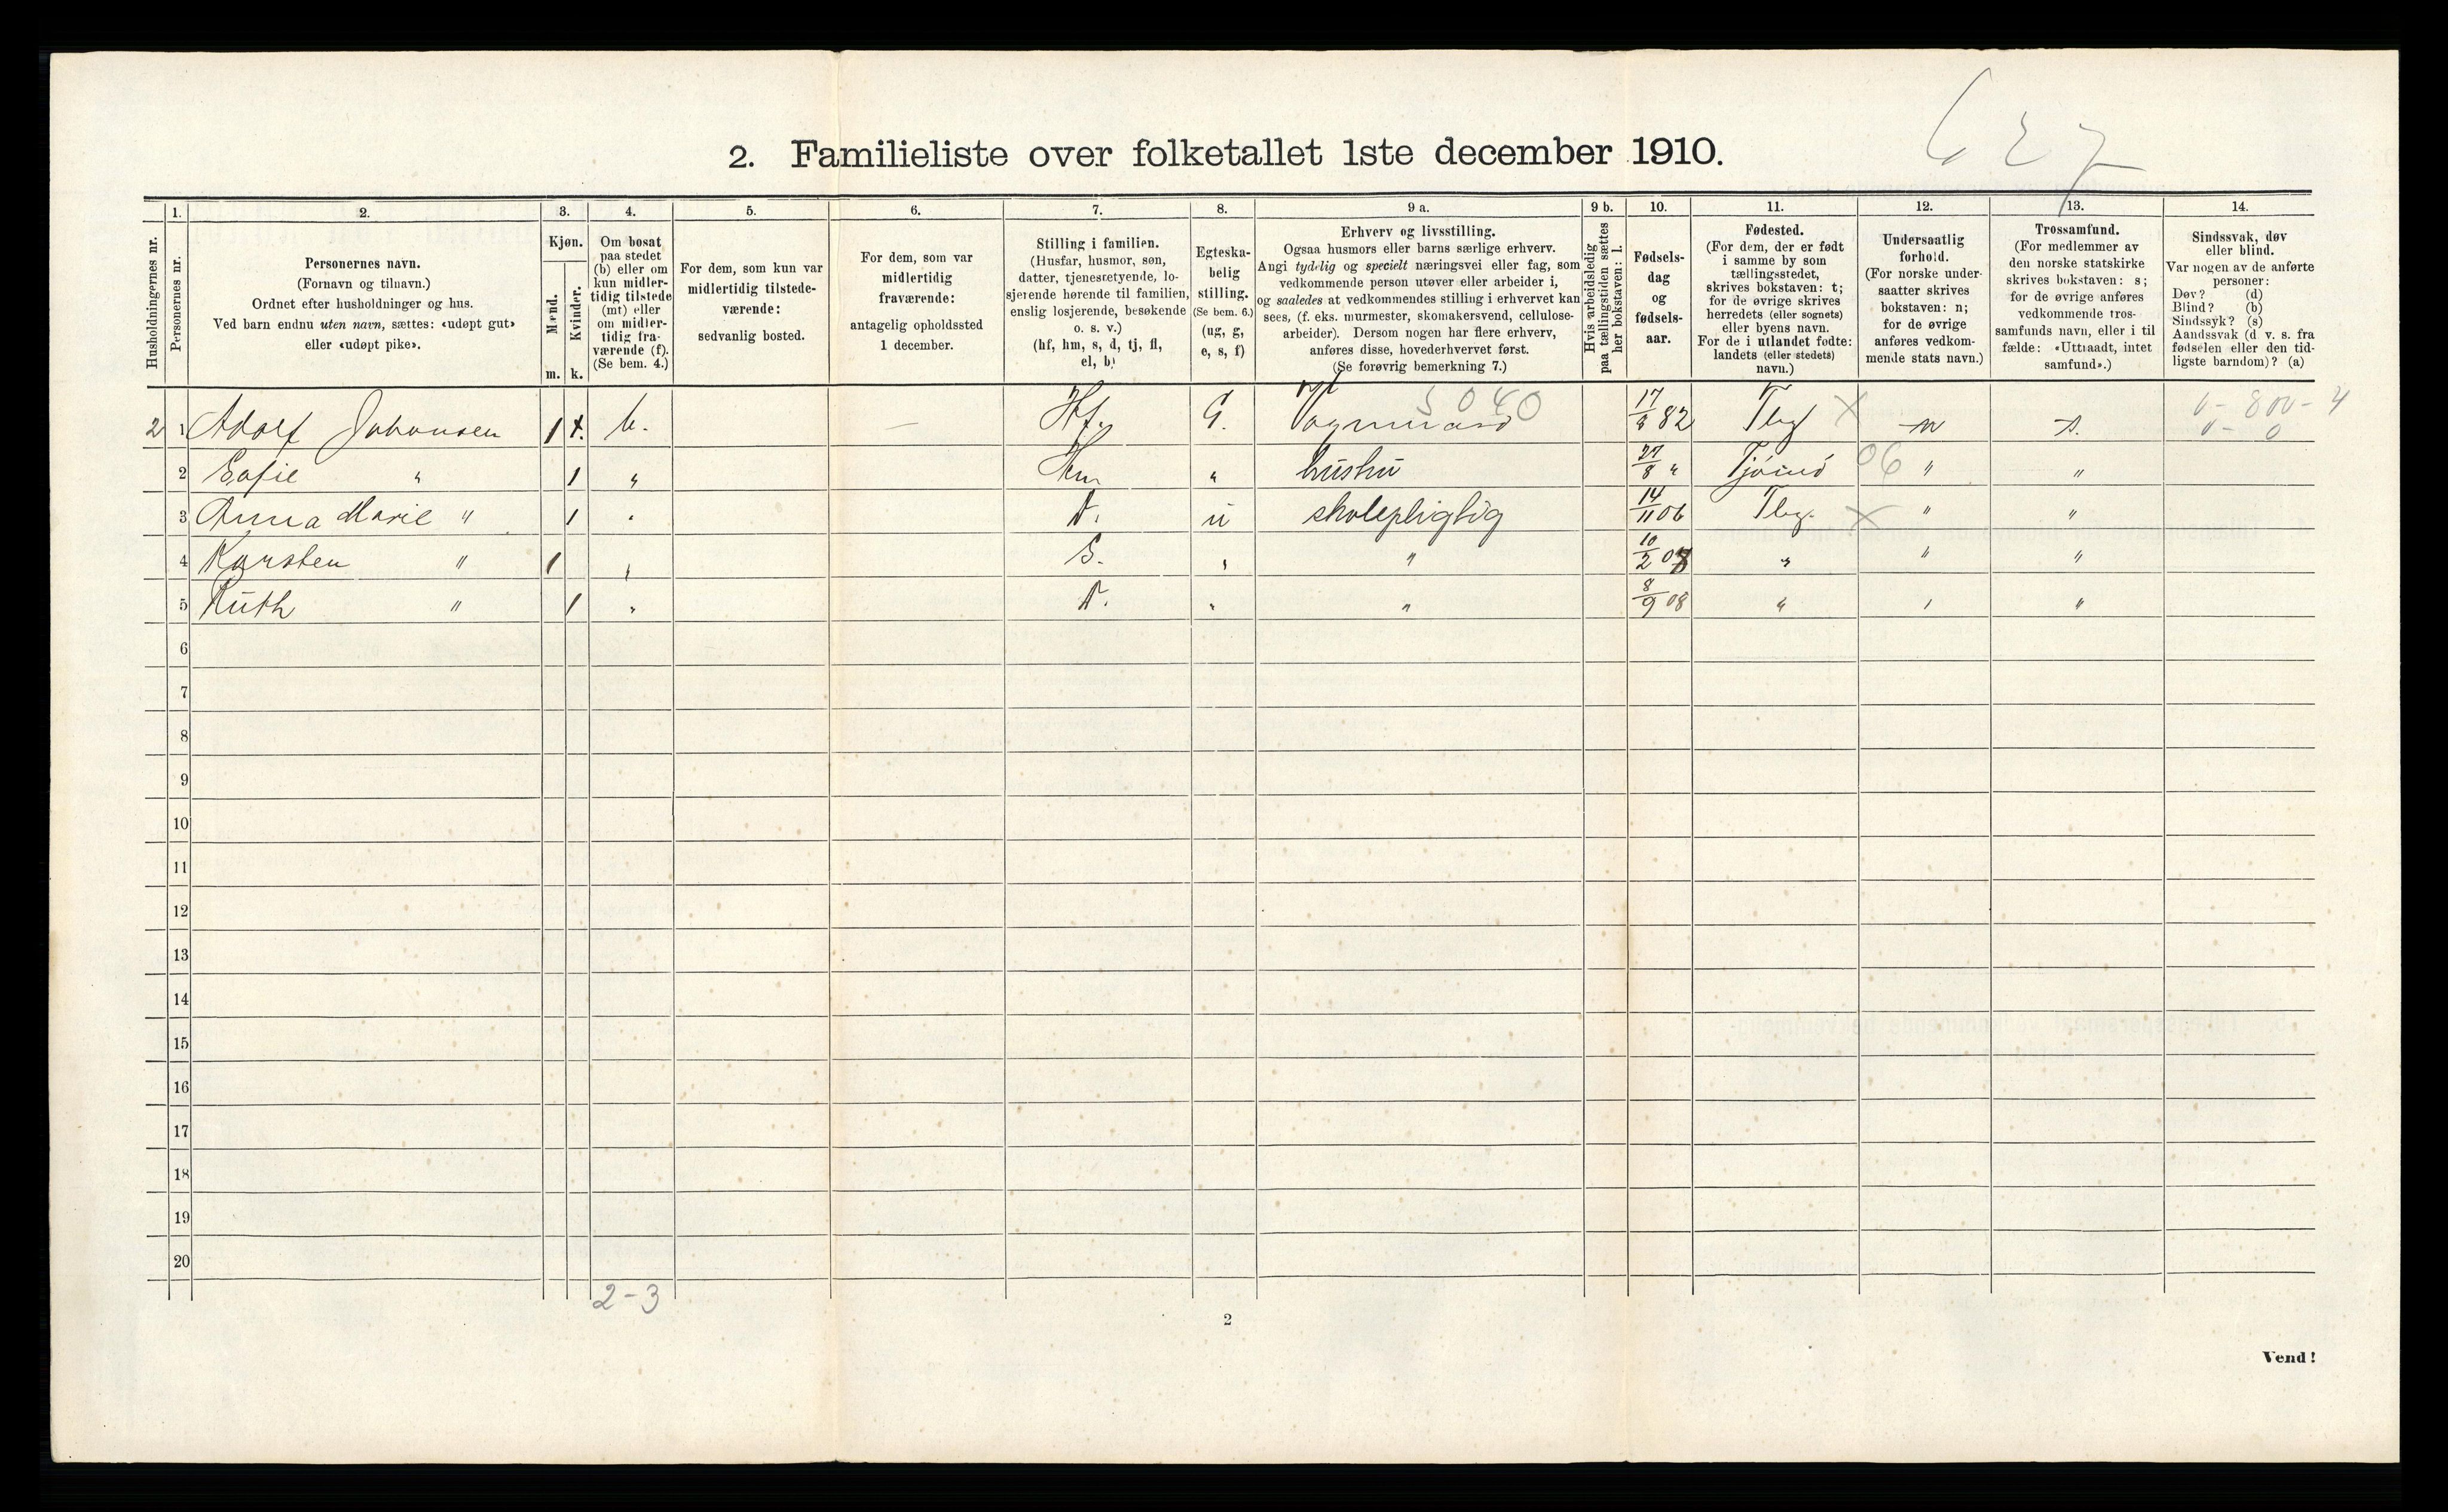 627
2. Familieliste over folketallet 1ste december 1910.
Husholdningernes nr.
1.
Personernes nr.
2.
Personernes navn.
(Fornavn og tilnavn.)
Ordnet efter husholdninger og hus.
Ved barn endnu uten navn, sættes: «udøpt gut»
eller «udøpt pike».
3.
Kjøn.
Mænd.
Kvinder.
m. k.
4.
Om bosat
paa stedet
(b) eller om
kun midler-
tidig tilstede
(mt) eller
om midler-
tidig fra-
værende (f).
(Se bem. 4.)
5.
For dem, som kun var
midlertidig tilstede-
værende:
sedvanlig bosted.
6.
For dem, som var
midlertidig
fraværende:
antagelig opholdssted
1 december.
7.
Stilling i familien.
(Husfar, husmor, søn,
datter, tjenestetyende, lo-
sjerende hørende til familien,
enslig losjerende, besøkende
o. s. v.)
(hf, hm, s, d, tj, fl,
el, b)
8.
Egteska-
belig
stilling.
(Se bem. 6.)
(ug, g,
e, s, f)
9 a.
Erhverv og livsstilling.
Ogsaa husmors eller barns særlige erhverv.
Angi tydelig og specielt næringsvei eller fag, som
vedkommende person utøver eller arbeider i,
og saaledes at vedkommendes stilling i erhvervet kan
sees, (f. eks. murmester, skomakersvend, cellulose-
arbeider). Dersom nogen har flere erhverv,
anføres disse, hovederhvervet først.
(Se forøvrig bemerkning 7.)
9 b.
Hvis arbeidsledig
paa tællingstiden sættes
her bokstaven: l.
10.
Fødsels-
dag
og
fødsels-
aar.
11.
Fødested.
(For dem, der er født
i samme by som
tællingsstedet,
skrives bokstaven: t;
for de øvrige skrives
herredets (eller sognets)
eller byens navn.
For de i utlandet fødte:
landets (eller stedets)
navn.)
12.
Undersaatlig
forhold.
(For norske under-
saatter skrives
bokstaven: n;
for de øvrige
anføres vedkom-
mende stats navn.)
13.
Trossamfund.
(For medlemmer av
den norske statskirke
skrives bokstaven: s;
for de øvrige anføres
vedkommende tros-
samfunds navn, eller i til-
fælde: «Uttraadt, intet
samfund».)
14.
Sindssvak, døv
eller blind.
Var nogen av de anførte
personer:
Døv? (d)
Blind? (b)
Sindssyk? (s)
Aandssvak (d v. s. fra
fødselen eller den tid-
ligste barndom)? (a)
2 1 Adolf Johansen 1 b. Hf. G. 5040 82 Tbg X n s. 800 - 4
0
2 Sofie " 1 " Hm " hushu 27/8 " Tjømø 06 " "
3 Anna Marie " 1 " D. u skolepligtig 14/11 06 Tbg. X " "
4 Karsten " 1 " S. " " 10/2 " " "
5 Ruth " 1 " D. " " 8/9 08 " " "
6
7
8
9
10
11
12
13
14
15
16
17
18
19
20
2-3
2
Vend!